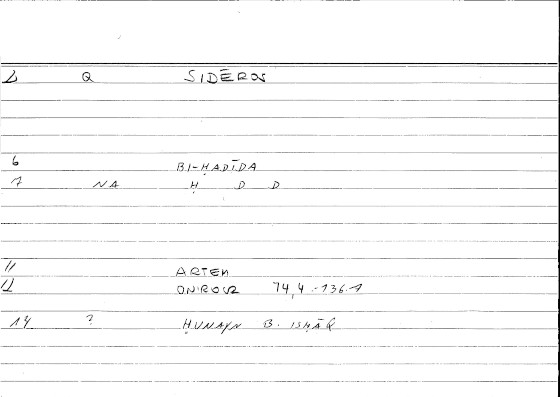 Q SIDĒROS
6 BI-ḤADĪDA
7 NA Ḥ D D
11 ARTEM
12 ONIROCR 74,4 - 136.1
14 ? ḤUNAYN B. ISḤĀQ